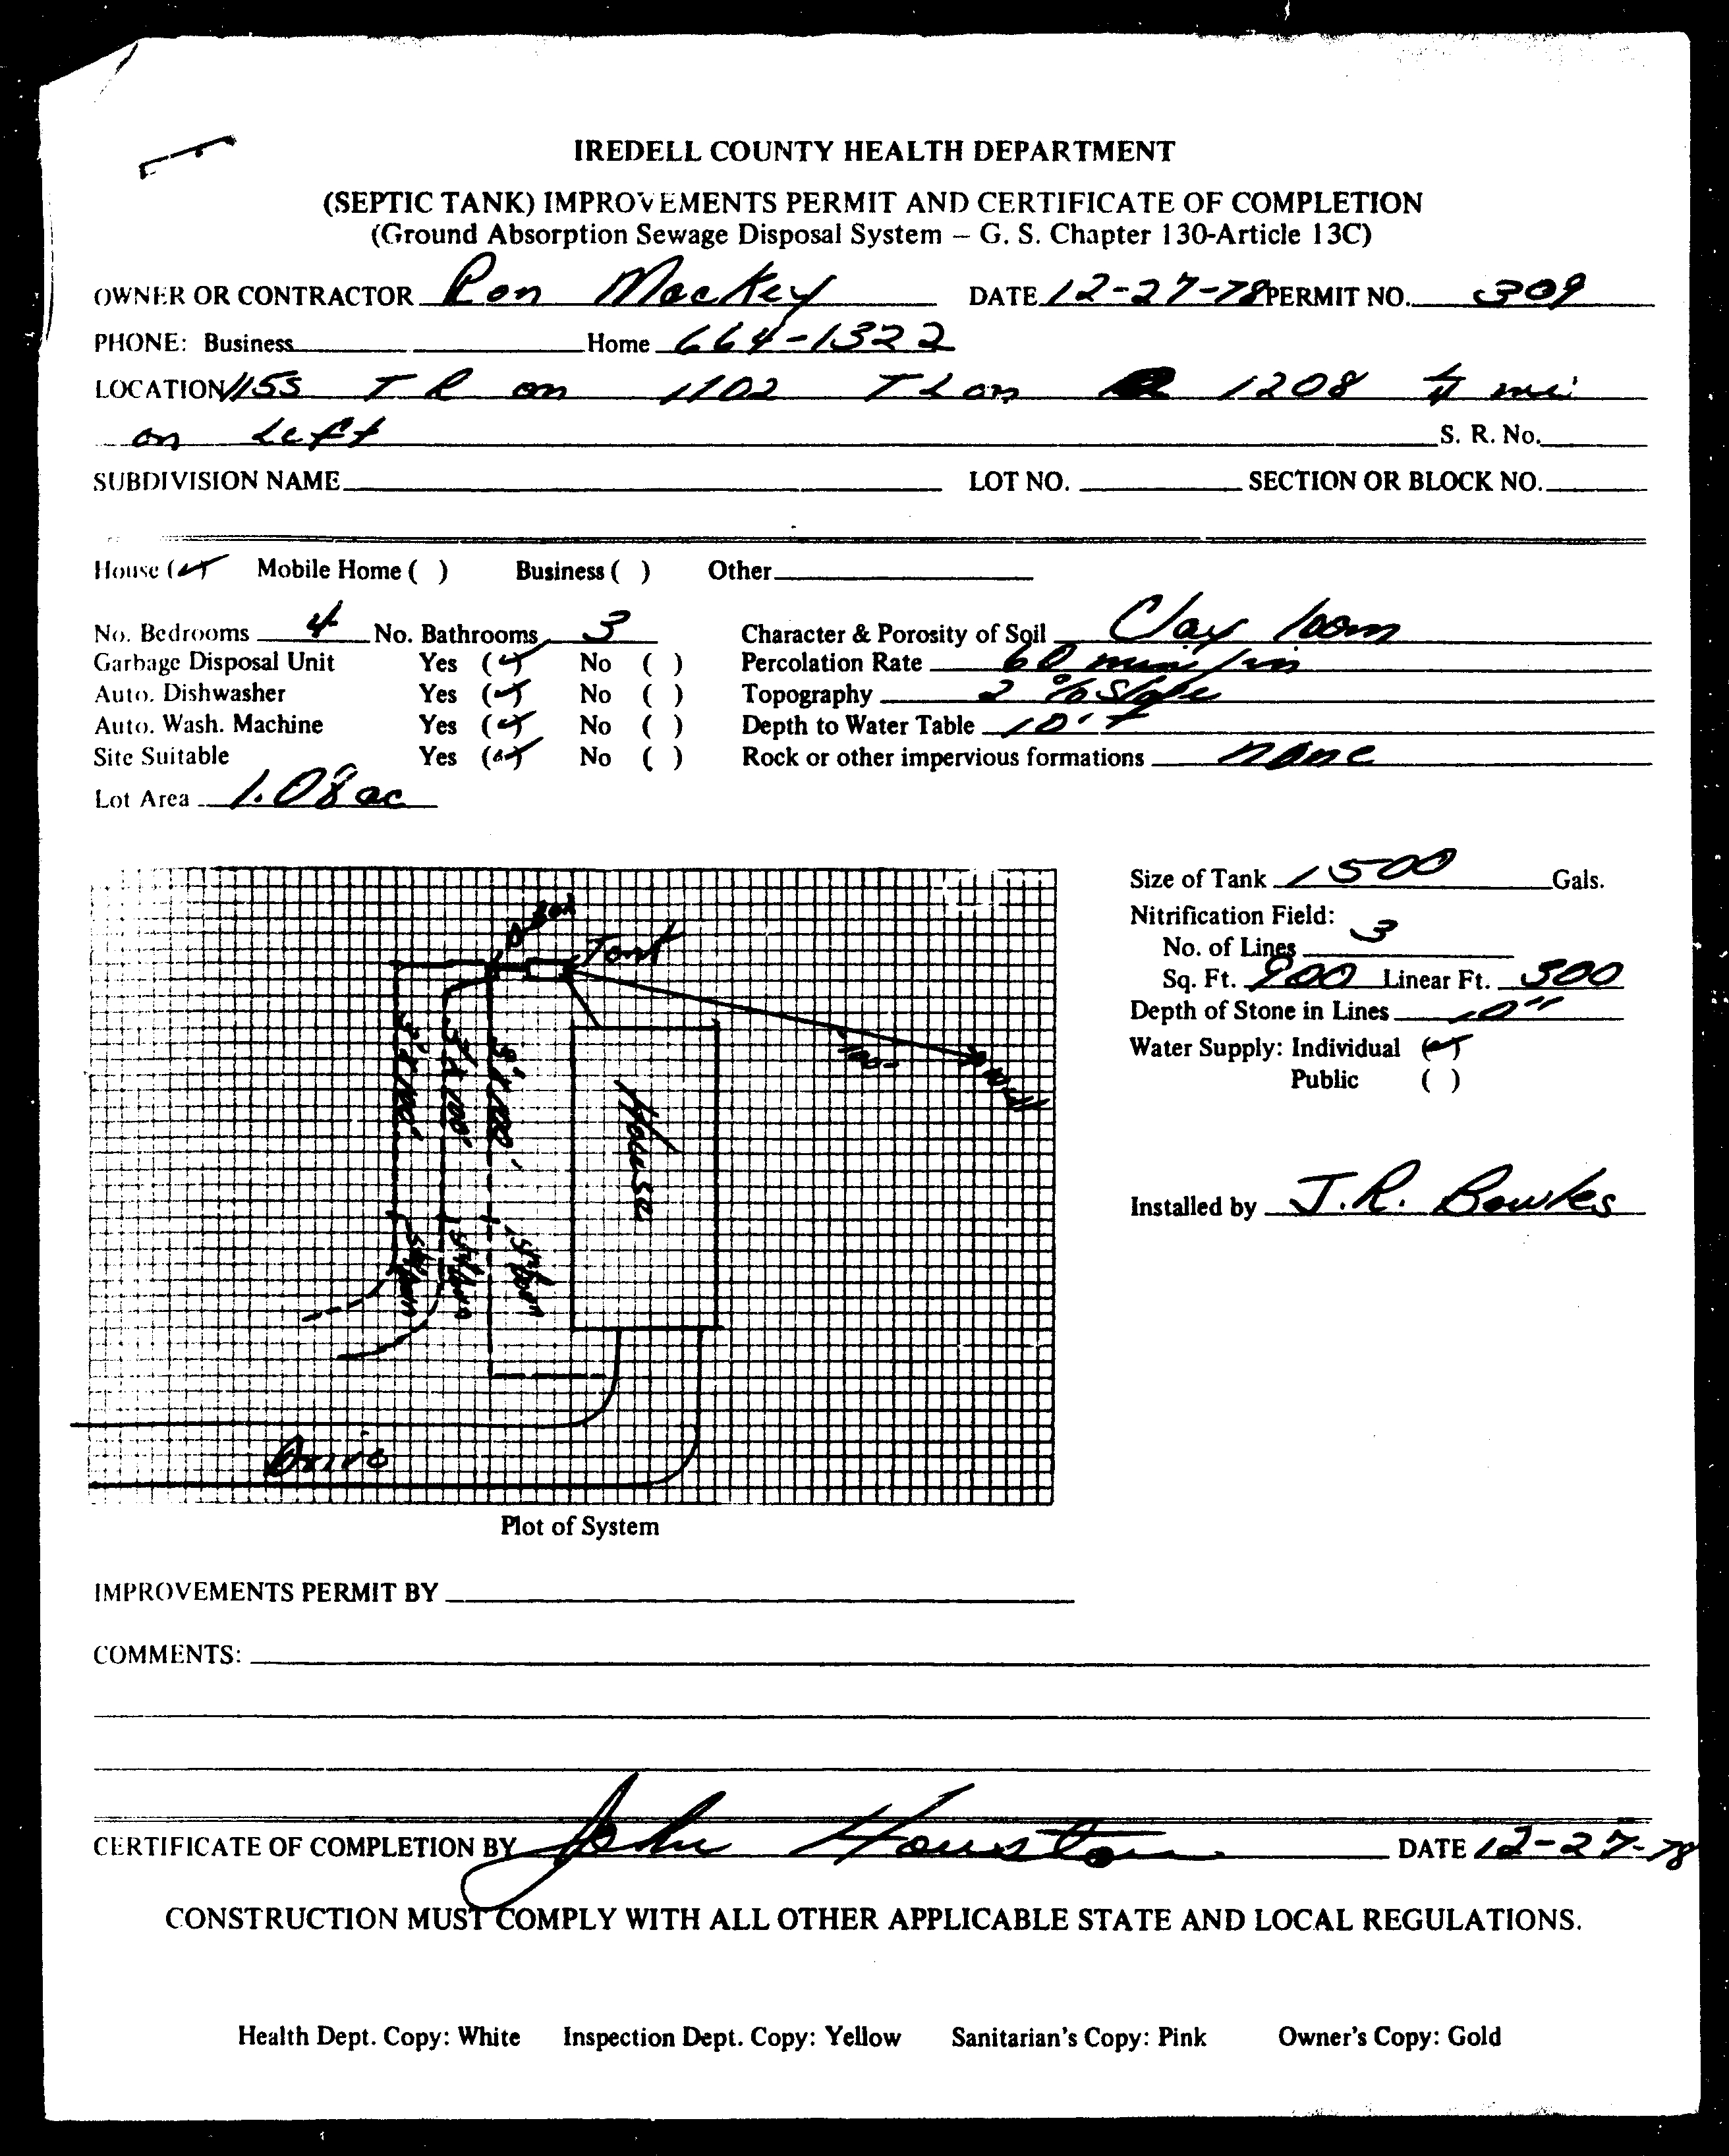 IREDELL COUNTY HEALTH DEPARTMENT
(SEPTIC TANK) IMPROVEMENTS PERMIT AND CERTIFICATE OF COMPLETION
(Ground Absorption Sewage Disposal System – G. S. Chapter 130-Article 13C)
OWNER OR CONTRACTOR Ron Mackey DATE 12-27-78 PERMIT NO. 309
PHONE: Business Home 664-1322
LOCATION 115S T R on 1102 T L on 1208 mi
on Left S. R. No.
SUBDIVISION NAME LOT NO. SECTION OR BLOCK NO.
House (✓) Mobile Home ( ) Business ( ) Other
No. Bedrooms 4 No. Bathrooms 3 Character & Porosity of Soil Clay loom
Garbage Disposal Unit Yes (✓) No ( ) Percolation Rate 60 min/in
Auto. Dishwasher Yes (✓) No ( ) Topography 2 % Slope
Auto. Wash. Machine Yes (✓) No ( ) Depth to Water Table 10' +
Site Suitable Yes (✓) No ( ) Rock or other impervious formations none
Lot Area 1.08 ac
Size of Tank 1500 Gals.
Nitrification Field:
No. of Lines 3
Sq. Ft. 900 Linear Ft. 300
Depth of Stone in Lines 10"
Water Supply: Individual (✓)
Public ( )
Installed by J.R. Bowles
D Box
Tank
3' x 100'
3' x 100'
3' x 100'
House
100'
Well
Drive
Plot of System
IMPROVEMENTS PERMIT BY
COMMENTS:
CERTIFICATE OF COMPLETION BY John Houston DATE 12-27-78
CONSTRUCTION MUST COMPLY WITH ALL OTHER APPLICABLE STATE AND LOCAL REGULATIONS.
Health Dept. Copy: White Inspection Dept. Copy: Yellow Sanitarian's Copy: Pink Owner's Copy: Gold